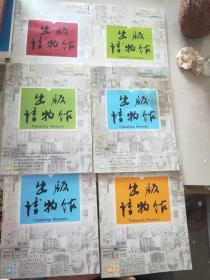 出版
博物馆
Publishing Museum
出版
博物馆
Publishing Museum
出版
博物馆
Publishing Museum
出版
博物馆
Publishing Museum
出版
博物馆
Publishing Museum
出版
博物馆
Publishing Museum